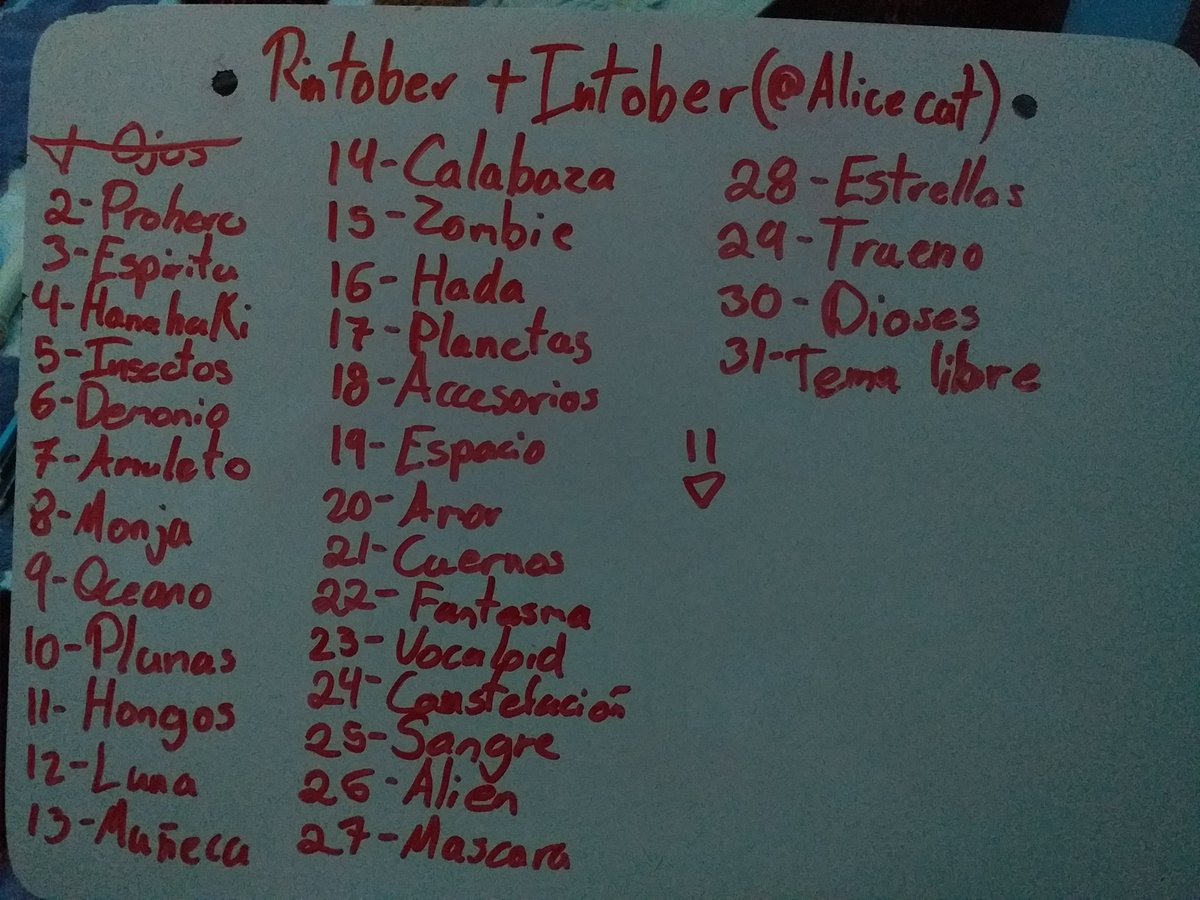 Rintober + Intober (@Alicecat)
1 Ojos
2-Prohero
3-Espiritu
4-Hanahaki
5-Insectos
6-Demonio
7-Amuleto
8-Monja
9-Oceano
10-Plumas
11-Hongos
12-Luna
13-Muñeca
14-Calabaza
15-Zombie
16-Hada
17-Planetas
18-Accesorios
19-Espacio
20-Amor
21-Cuernos
22-Fantasma
23-Vocaloid
24-Constelación
25-Sangre
26-Alien
27-Mascara
28-Estrellas
29-Trueno
30-Dioses
31-Tema libre